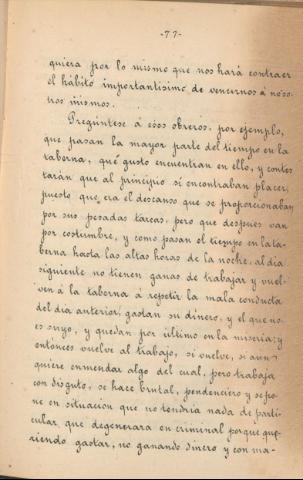 -77-
quiera por lo mismo que nos hará contraer
el hábito importantísimo de vencernos á noso-
tros mismos.
Pregúntese á esos obreros, por ejemplo,
que pasan la mayor parte del tiempo en la
taberna, qué gusto encuentran en ello, y contes
tarán que al principio si encontraban placer,
puesto que era el descanso que se proporcionaban
por sus pesadas tareas, pero que despues van
por costumbre, y como pasan el tiempo en la ta-
berna hasta las altas horas de la noche, al dia
siguiente no tienen ganas de trabajar y vuel-
ven á la taberna á repetir la mala conducta
del dia anterior, gastan su dinero, y el que no
es suyo, y quedan por último en la miseria; y
entónces vuelve al trabajo, si vuelve, si aun
quiere enmendar algo del cual, pero trabaja
con disgusto, se hace brutal, pendenciero y se po-
ne en situacion que no tendria nada de parti-
cular que degenerara en criminal porque que-
riendo gastar, no ganando dinero y con ma-